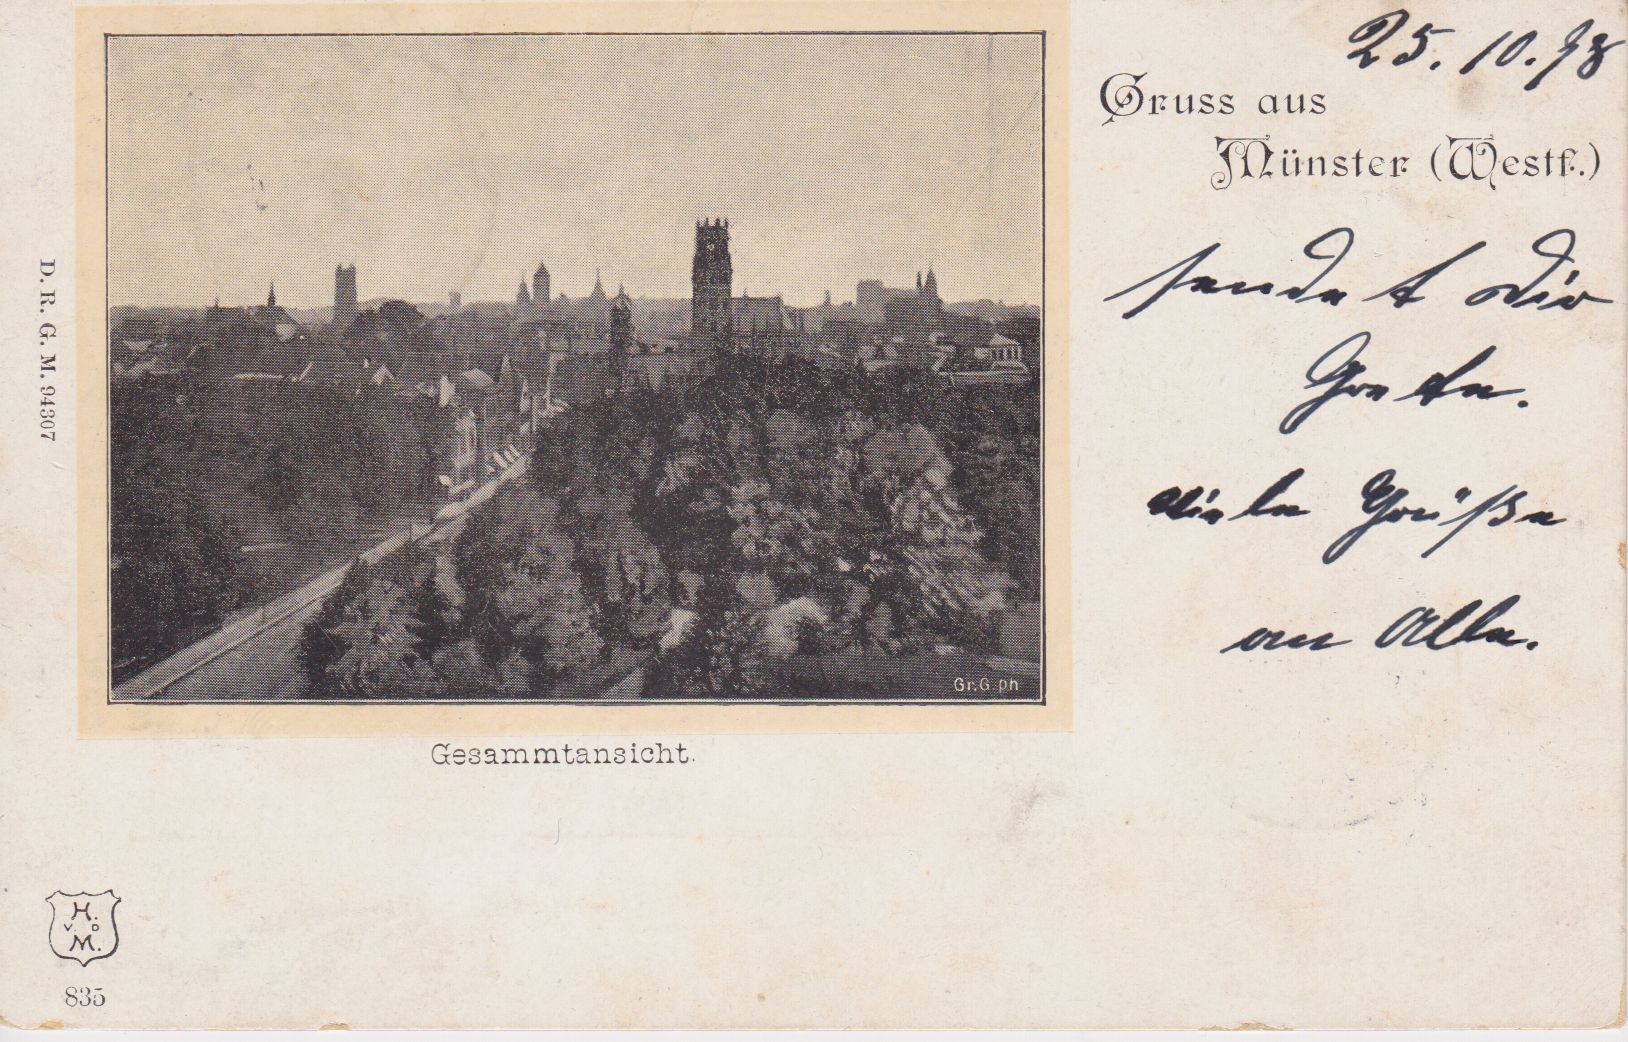 25. 10. 98
Gruss aus
Münster (Westf.)
sendet dir
Grete.
viele Grüße
an Alle.
D. R. G. M. 94307
Gr.G.ph
Gesammtansicht.
H.
V. D
M.
835